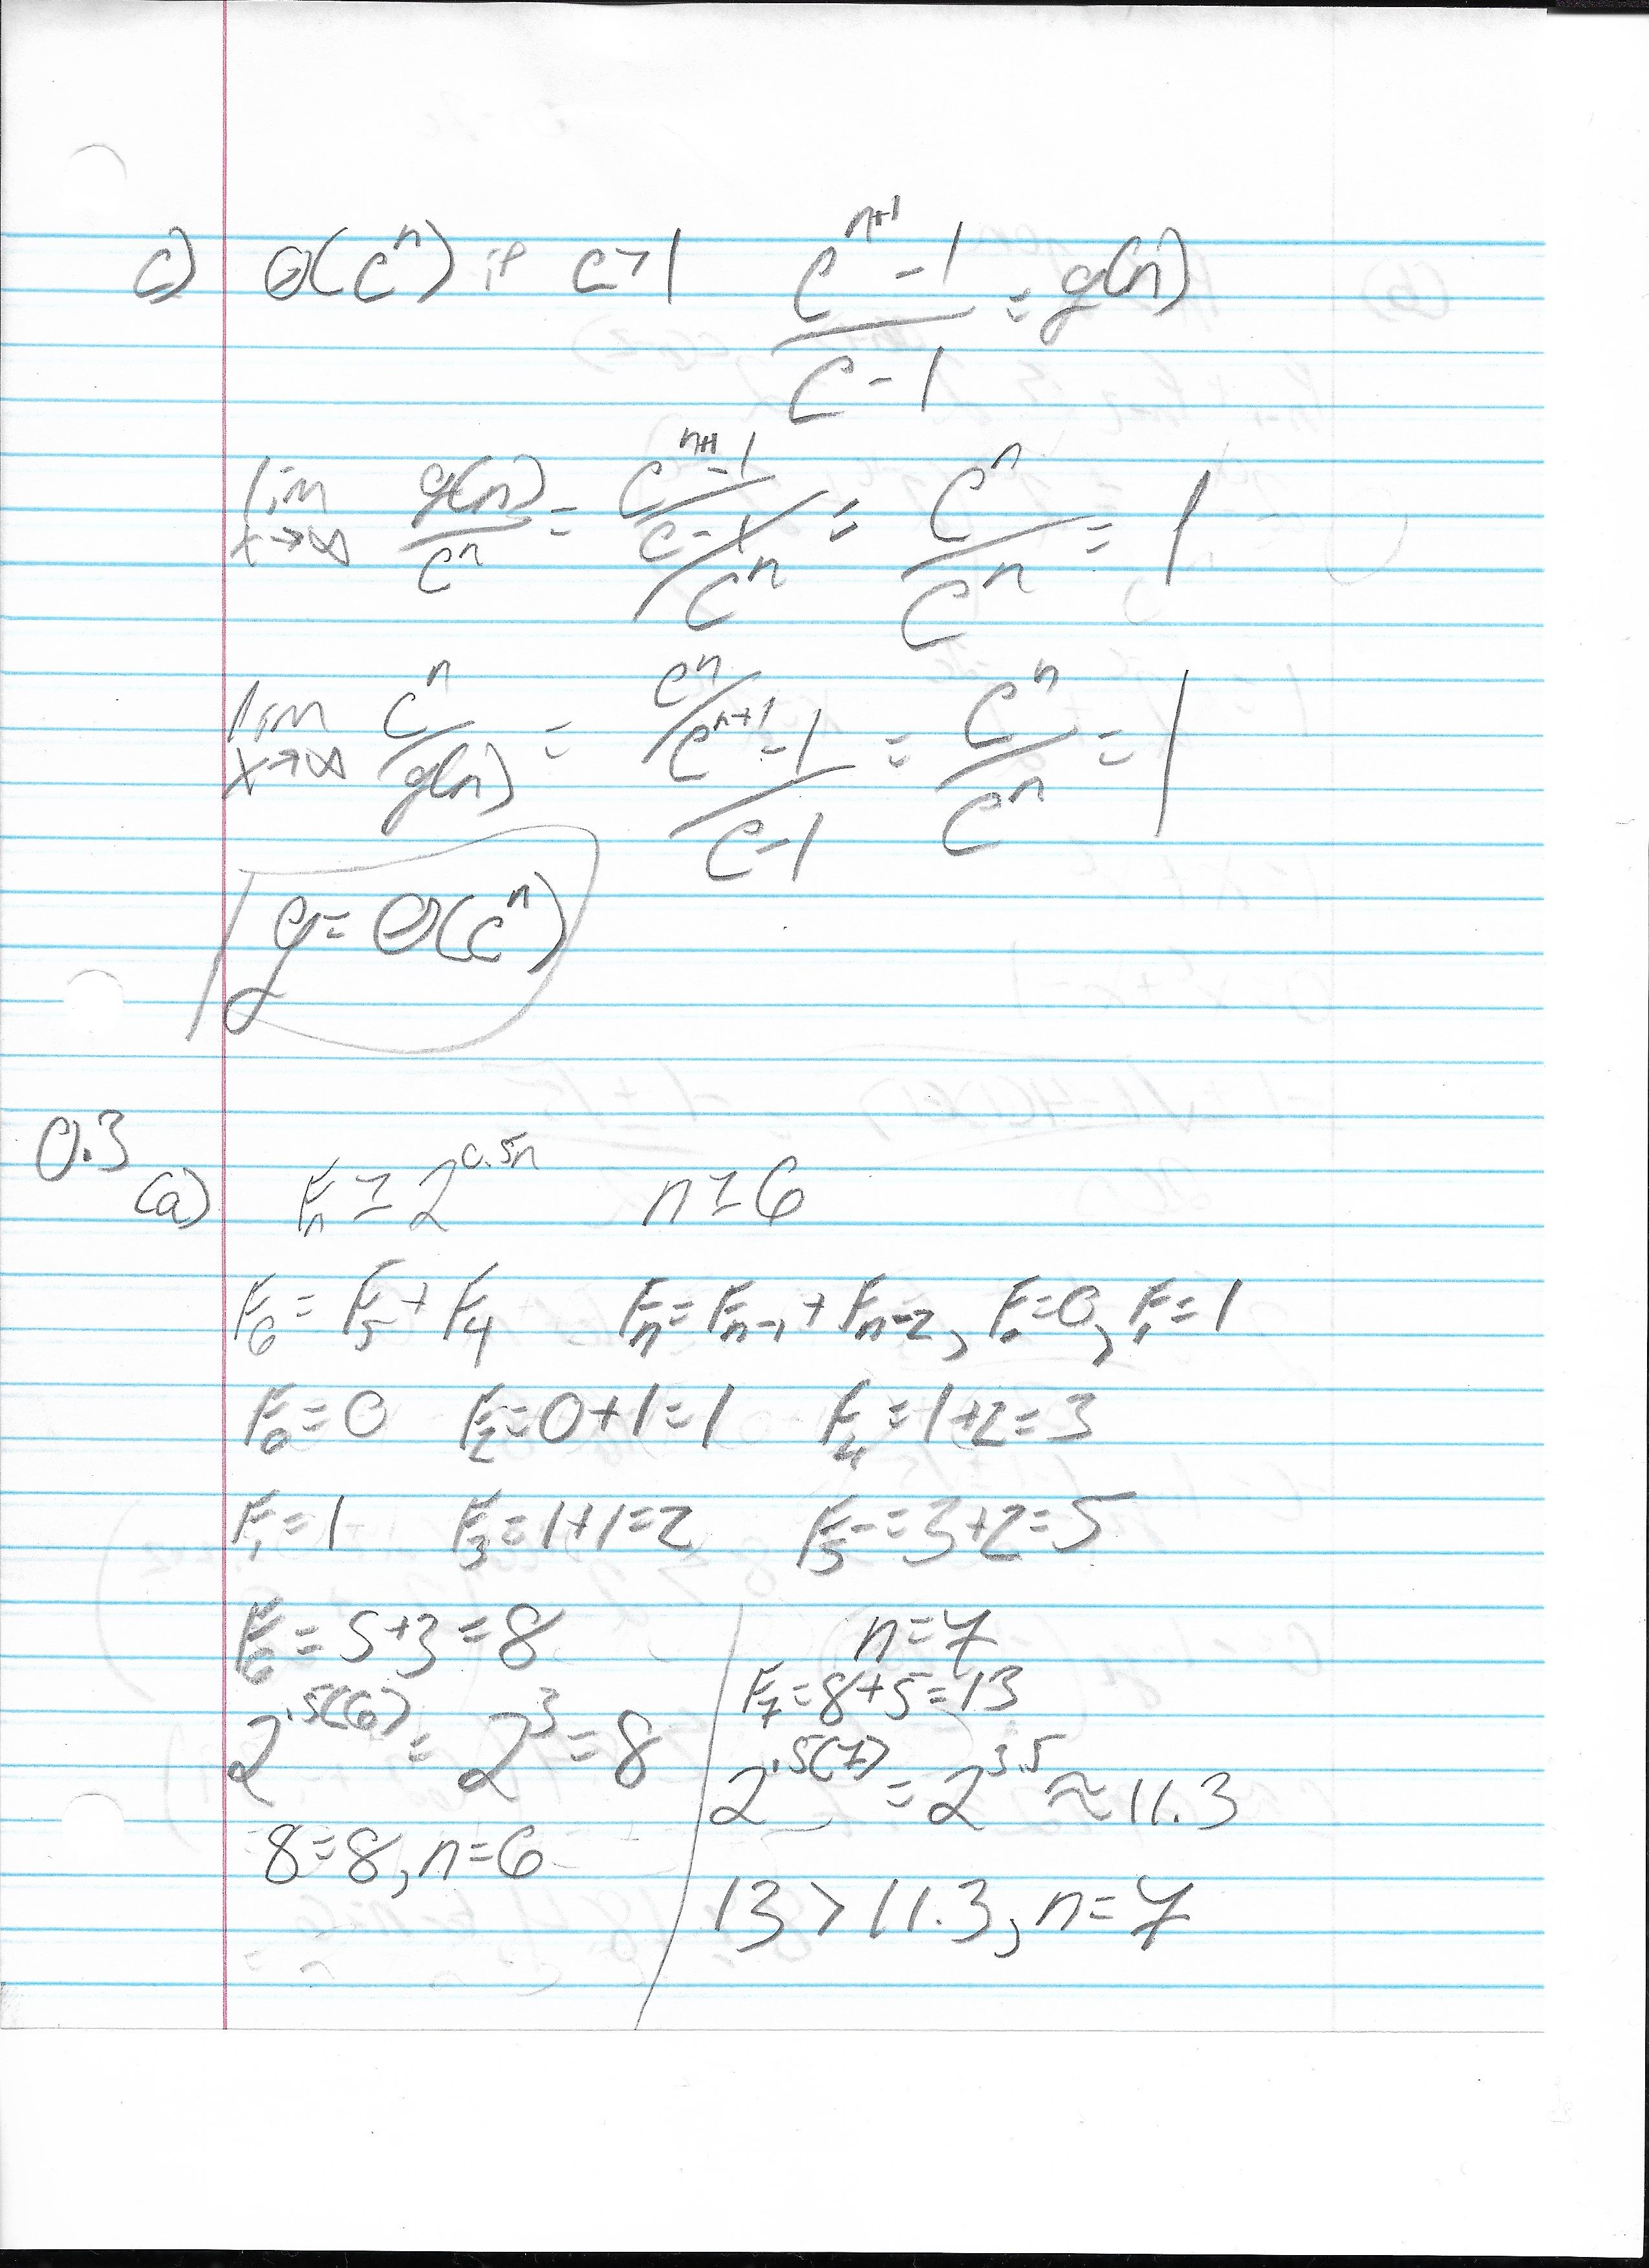 c) Θ(cⁿ) if c>1 (cⁿ⁺¹-1)/(c-1) = g(n)
lim x→∞ g(n)/cⁿ = ((cⁿ⁺¹-1)/(c-1))/cⁿ = cⁿ/cⁿ = 1
lim x→∞ cⁿ/g(n) = cⁿ/((cⁿ⁺¹-1)/(c-1)) = cⁿ/cⁿ = 1
g = Θ(cⁿ)
0.3
(a) Fₙ ≥ 2^0.5n n ≥ 6
F₆ = F₅ + F₄ Fₙ = Fₙ₋₁ + Fₙ₋₂, F₀=0, F₁=1
F₀ = 0 F₂ = 0+1=1 F₄ = 1+2=3
F₁ = 1 F₃ = 1+1=2 F₅ = 3+2=5
F₆ = 5+3=8
2^.5(6) = 2³ = 8
8=8, n=6
n=7
F₇ = 8+5=13
2^.5(7) = 2^3.5 ≈ 11.3
13 > 11.3, n=7